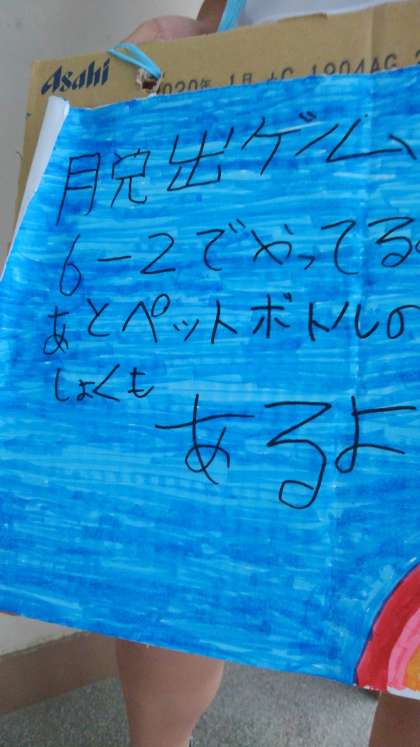 Asahi
2020年 1月
1904AG
脱出ゲーム
6-2でやってる
あとペットボトルの
しょくも
あるよ